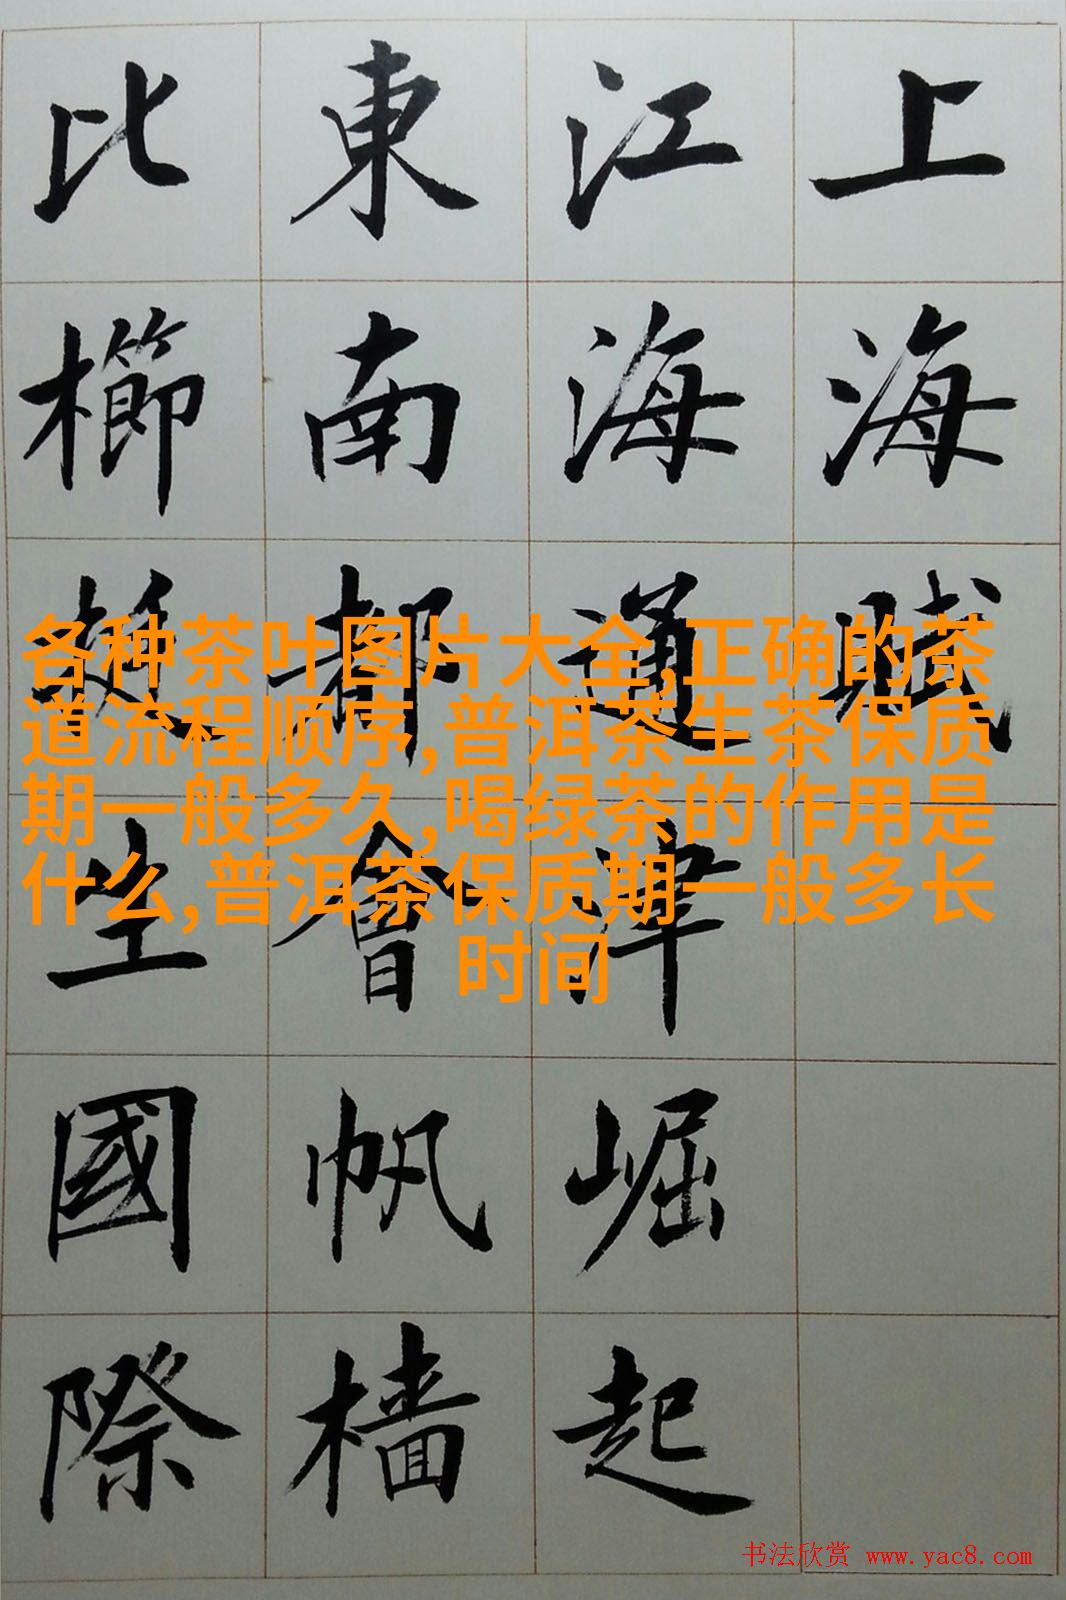 上海賦
江海通津崛起
東南都會帆樯
比櫛挺生國際
各种茶叶图片大全,正确的茶
道流程顺序,普洱茶生茶保质
期一般多久,喝绿茶的作用是
什么,普洱茶保质期一般多长
时间
书法欣赏 www.yac8.com